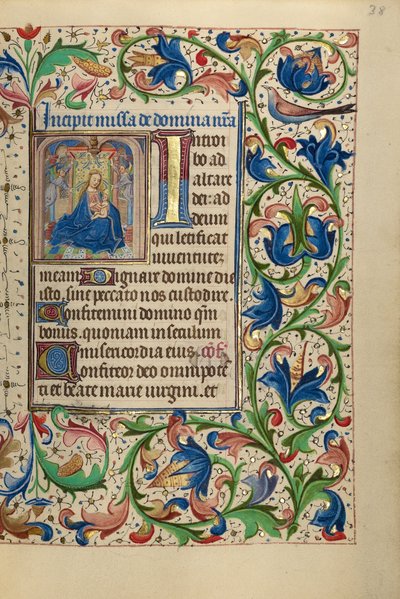 38
Incipit missa de domina nr̄a
Introi
bo ad
altare
dei: ad
deum
qui letificat
iuuentutez
meam Dignare domine die
isto, sine peccato nos custodire
Confitemini domino qm̄
bonus. quoniam in seculum
misericordia eius. cōf̄
Confiteor deo omnipotē
ti et beate marie virgini. et